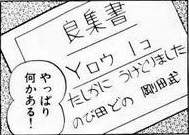 良集書
Yロウ 1コ
たしかに うけとりました
のび田どの 剛田武
やっぱり
何かある!